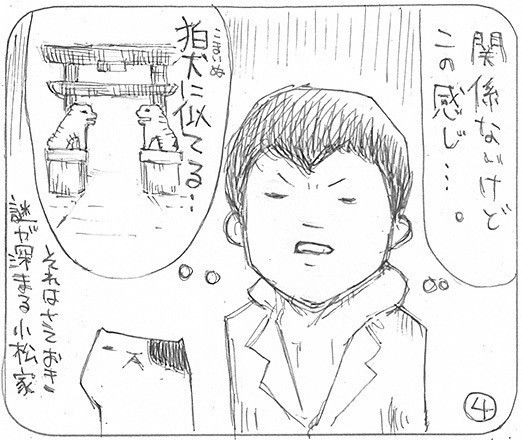 関係ないけど
この感じ…。
狛犬に似てる…
こまいぬ
それはさておき
謎が深まる小松家
④